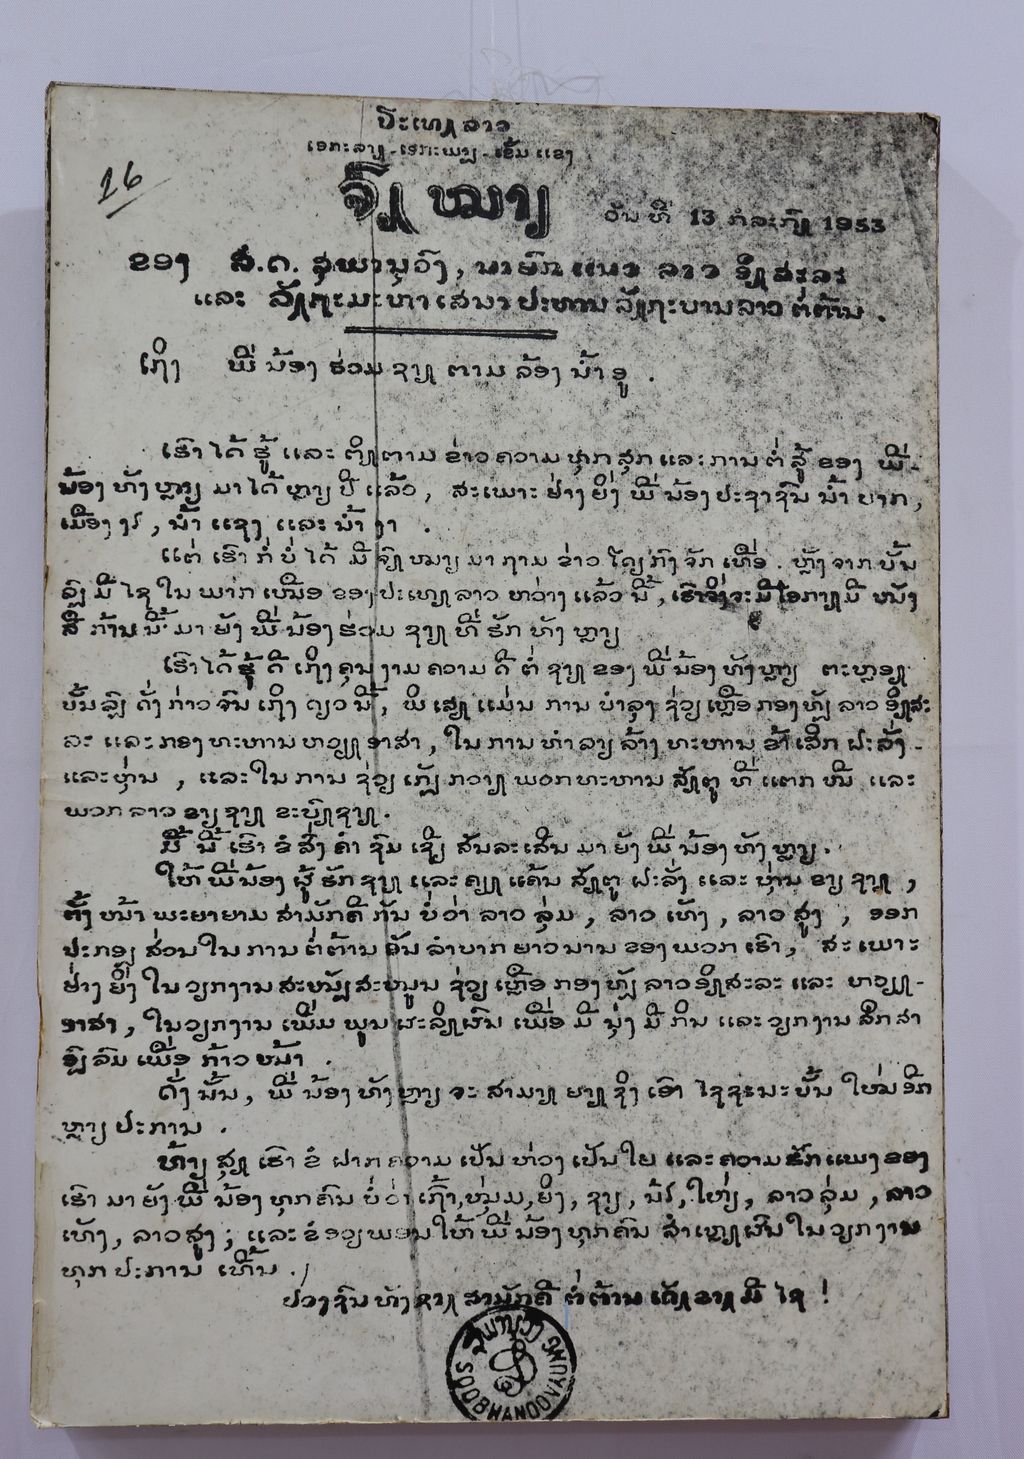 ປະເທດລາວ
ເອກະລາດ - ເອກະພາບ - ເຂັ້ມແຂງ
16
ຈົດໝາຍ
ວັນທີ່ 13 ກໍລະກົດ 1953
ຂອງ ສ.ດ. ສຸພານຸວົງ, ນາຍົກ ແນວ ລາວ ອິດສະລະ
ແລະ ລັດຖະມະຫາເສນາ ປະທານ ລັດຖະບານລາວ ຕໍ່ຕ້ານ .
ເຖິງ ພີ່ ນ້ອງ ຮ່ວມ ຊາດ ຕາມ ລ້ອງ ນ້ຳ ອູ .
ເຮົາ ໄດ້ ຮູ້ ແລະ ຕິດຕາມ ຂ່າວ ຄວາມ ທຸກ ສຸກ ແລະ ການ ຕໍ່ ສູ້ ຂອງ ພີ່-
ນ້ອງ ທັງ ຫຼາຍ ມາ ໄດ້ ຫຼາຍ ປີ ແລ້ວ, ສະເພາະ ຢ່າງ ຍິ່ງ ພີ່ ນ້ອງ ປະຊາຊົນ ນ້ຳ ບາກ,
ເມືອງ ງາ, ນ້ຳ ແຊງ ແລະ ນ້ຳ ງາ .
ແຕ່ ເຮົາ ກໍ່ ບໍ່ ໄດ້ ມີ ຈົດ ໝາຍ ມາ ຖາມ ຂ່າວ ໂດຍ ກົງ ຈັກ ເທື່ອ . ຫຼັງ ຈາກ ບັ້ນ
ລົບ ມີ ໄຊ ໃນ ພາກ ເໜືອ ຂອງ ປະເທດ ລາວ ຫວ່າງ ແລ້ວ ນີ້, ເຮົາຈຶ່ງຈະມີໂອກາດມີ ໜັງ
ສື ກ້ານ ນີ້ ມາ ຍັງ ພີ່ ນ້ອງ ຮ່ວມ ຊາດ ທີ່ ຮັກ ທັງ ຫຼາຍ
ເຮົາ ໄດ້ ຮູ້ ດີ ເຖິງ ຄຸນ ງາມ ຄວາມ ດີ ຕໍ່ ຊາດ ຂອງ ພີ່ ນ້ອງ ທັງ ຫຼາຍ ຕະຫຼອດ
ບັ້ນ ລົບ ດັ່ງ ກ່າວ ຈົນ ເຖິງ ດຽວ ນີ້, ພິ ເສດ ແມ່ນ ການ ບຳລຸງ ຊ່ວຍ ເຫຼືອ ກອງ ທັບ ລາວ ອິດສະ
ລະ ແລະ ກອງ ທະຫານ ຫວຽດ ອາສາ, ໃນ ການ ທຳລາຍ ລ້າງ ທະຫານ ຂ້າ ເສິກ ຝະລັ່ງ -
ແລະ ຫຸ່ນ , ແລະ ໃນ ການ ຊ່ວຍ ເກັບ ກວາດ ພວກ ທະຫານ ສັດຕູ ທີ່ ແຕກ ໜີ ແລະ
ພວກ ລາວ ຂາຍ ຊາດ ຂະບົດຊາດ.
ມື້ ນີ້ ເຮົາ ຂໍ ສົ່ງ ຄຳ ຊົມ ເຊີຍ ສັນລະເສີນ ມາ ຍັງ ພີ່ ນ້ອງ ທັງ ຫຼາຍ.
ໃຫ້ ພີ່ ນ້ອງ ຜູ້ ຮັກ ຊາດ ແລະ ຄຽດ ແຄ້ນ ສັດຕູ ຝະລັ່ງ ແລະ ຫຸ່ນ ຂາຍ ຊາດ ,
ຕັ້ງ ໜ້າ ພະຍາຍາມ ສາມັກຄີ ກັນ ບໍ່ວ່າ ລາວ ລຸ່ມ , ລາວ ເທິງ , ລາວ ສູງ , ອອກ
ປະກອບ ສ່ວນ ໃນ ການ ຕໍ່ຕ້ານ ອັນ ລຳບາກ ຍາວນານ ຂອງ ພວກ ເຮົາ, ສະ ເພາະ
ຢ່າງ ຍິ່ງ ໃນ ວຽກງານ ສະໜັບສະໜູນ ຊ່ວຍ ເຫຼືອ ກອງ ທັບ ລາວ ອິດສະລະ ແລະ ຫວຽດ-
ອາສາ, ໃນວຽກງານ ເພີ່ມ ພູນ ຜະລິດຜົນ ເພື່ອ ມີ ນຸ່ງ ມີ ກິນ ແລະ ວຽກ ງານ ສຶກສາ
ອົບ ລົມ ເພື່ອ ກ້າວ ໜ້າ .
ດັ່ງ ນັ້ນ, ພີ່ ນ້ອງ ທັງ ຫຼາຍ ຈະ ສາມາດ ຍາດ ຊິງ ເອົາ ໄຊຊະນະ ບັ້ນ ໃໝ່ ອີກ
ຫຼາຍ ປະການ .
ທ້າຍ ສຸດ ເຮົາ ຂໍ ຝາກ ຄວາມ ເປັນ ຫ່ວງ ເປັນ ໃຍ ແລະ ຄວາມ ຮັກ ແພງ ຂອງ
ເຮົາ ມາ ຍັງ ພີ່ ນ້ອງ ທຸກ ຄົນ ບໍ່ ວ່າ ເຖົ້າ, ໜຸ່ມ, ຍິງ, ຊາຍ, ນ້ອຍ, ໃຫຍ່, ລາວ ລຸ່ມ , ລາວ
ເທິງ, ລາວ ສູງ; ແລະ ຂໍ ອວຍພອນ ໃຫ້ ພີ່ ນ້ອງ ທຸກ ຄົນ ສຳ ເຫຼດ ຜົນ ໃນ ວຽກ ງານ
ທຸກ ປະການ ເທີ້ນ ./
ປວງຊົນ ທັງ ຊາດ ສາມັກຄີ ຕໍ່ຕ້ານ ເດັດຂາດ ມີ ໄຊ !
ສຸພານຸວົງ
SOUPHANOUVONG